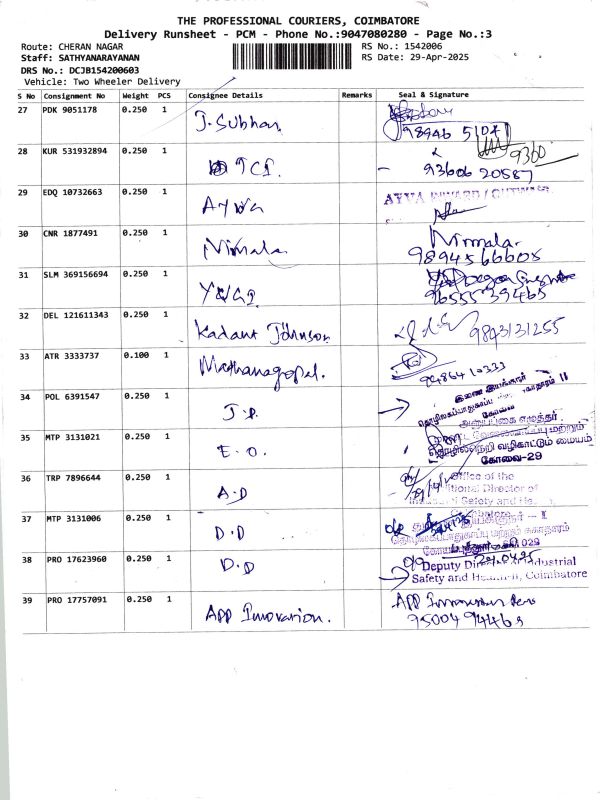 THE PROFESSIONAL COURIERS, COIMBATORE
Delivery Runsheet - PCM - Phone No.:9047080280 - Page No.:3
Route: CHERAN NAGAR
RS No.: 1542006
Staff: SATHYANARAYANAN
RS Date: 29-Apr-2025
DRS No.: DCJB154200603
Vehicle: Two Wheeler Delivery
S No Consignment No Weight PCS Consignee Details Remarks Seal & Signature
27 PDK 9051178 0.250 1 J. Subhan
98946 5104
28 KUR 531932894 0.250 1 TCI
9360
93606 20587
29 EDQ 10732663 0.250 1 Aywa
AYVA INWARD / OUTWARD
30 CNR 1877491 0.250 1 Nirmala
Nirmala
9894566605
31 SLM 369156694 0.250 1
9655539465
32 DEL 121611343 0.250 1 Kadant Johnson
9843131255
33 ATR 3333737 0.100 1 Mathanagopal.
9486410333
34 POL 6391547 0.250 1 J.D.
இணை இயக்குநர்
கோவை
35 MTP 3131021 0.250 1 E.O.
வேலைவாய்ப்பு மற்றும்
தொழில்நெறி வழிகாட்டும் மையம்
கோவை-29
36 TRP 7896644 0.250 1 A.D
Office of the
Director of
Safety and
37 MTP 3131006 0.250 1 D.D
Coimbatore
தொழிலகப்பாதுகாப்பு மற்றும் சுகாதாரம்
38 PRO 17623960 0.250 1 D.D
Deputy Director Industrial
Safety and Health-II, Coimbatore
39 PRO 17757091 0.250 1 App Innovation.
95004 94463